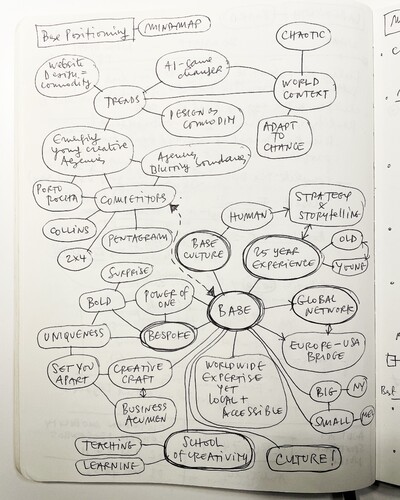 Base Positioning
MINDMAP
CHAOTIC
Website
Design =
commodity
AI-game
changer
TRENDS
WORLD
CONTEXT
DESIGN as
COMMODITY
ADAPT
TO
CHANGE
Emerging
young creative
Agencies
Agencies
Blurring boundaries
PORTO
ROCHA
COMPETITORS
STRATEGY
&
STORYTELLING
HUMAN
COLLINS
PENTAGRAM
BASE
CULTURE
25 YEAR
EXPERIENCE
OLD
YOUNG
2x4
SURPRISE
BOLD
POWER OF
ONE
BASE
GLOBAL
NETWORK
UNIQUENESS
BESPOKE
EUROPE-USA
BRIDGE
SET YOU
APART
CREATIVE
CRAFT
WORLDWIDE
EXPERTISE
YET
LOCAL +
ACCESSIBLE
BIG
NY
BUSINESS
ACUMEN
SMALL
TEACHING
LEARNING
SCHOOL
OF CREATIVITY
CULTURE!